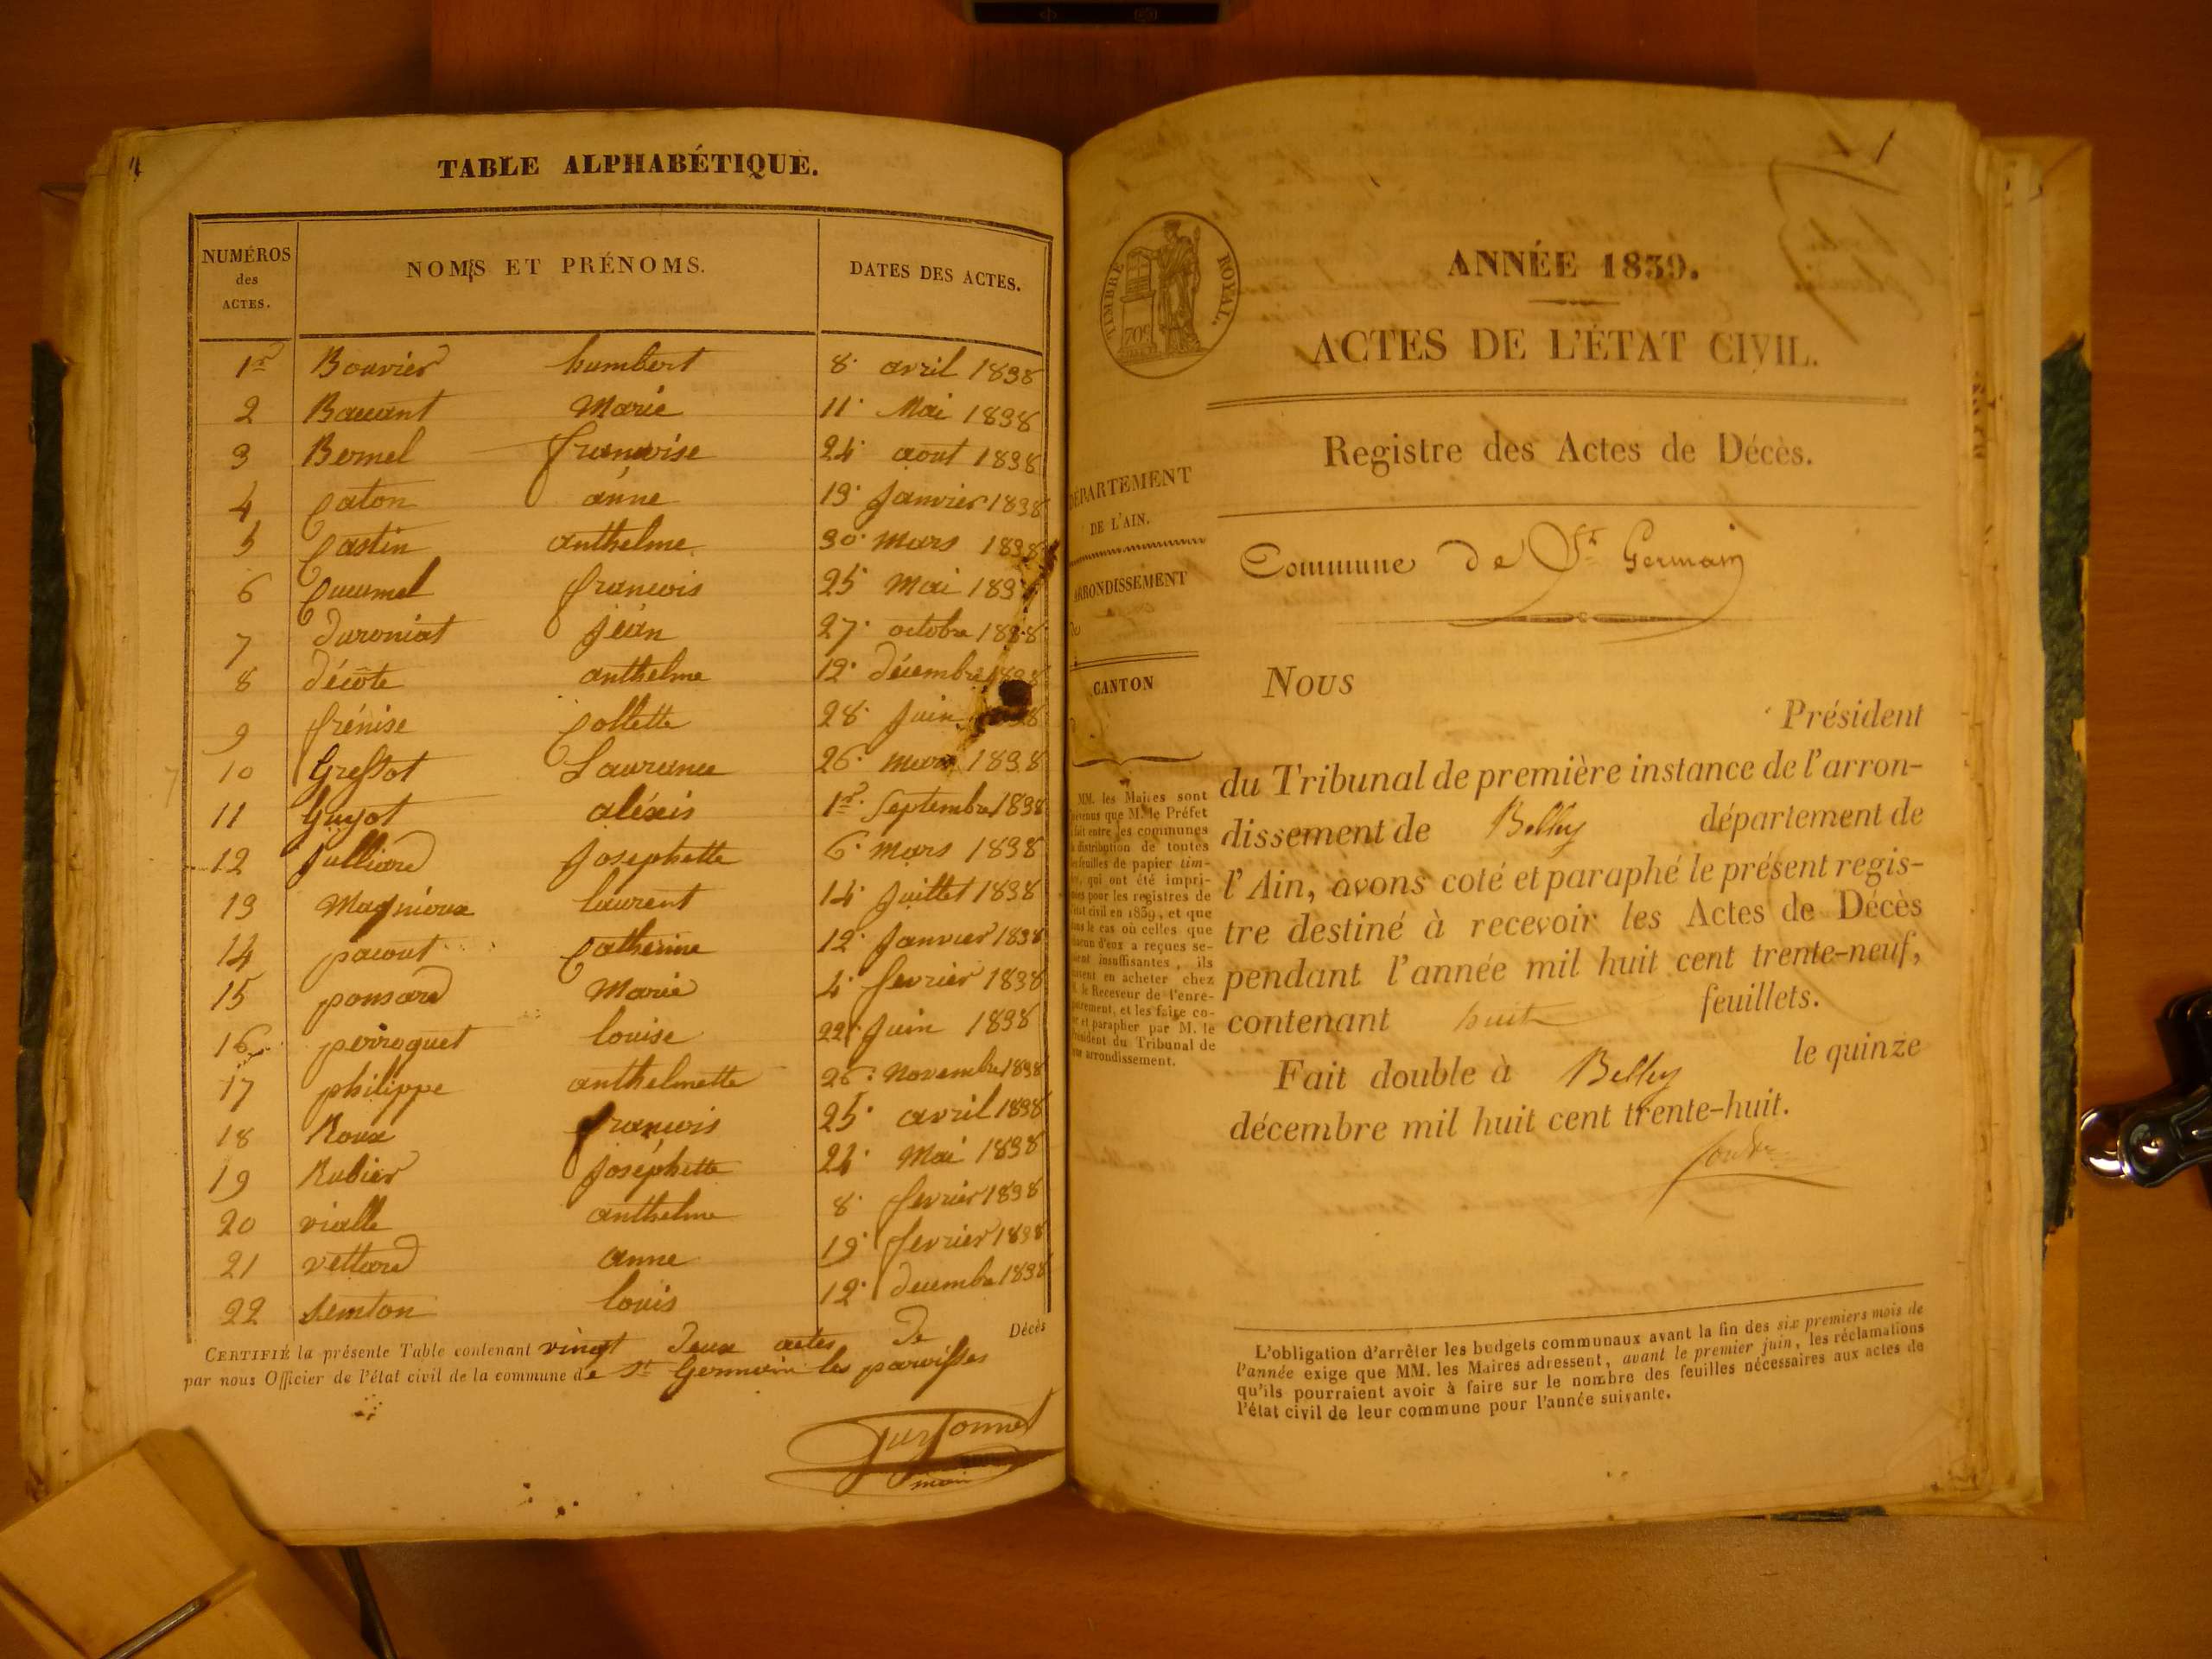 4
TABLE ALPHABÉTIQUE.
NUMÉROS des ACTES. NOMS ET PRÉNOMS. DATES DES ACTES.
1er Bouvier humbert 8. avril 1838
2 Baccant Marie 11. Mai 1838
3 Bornel francoise 24. aout 1838
4 Caton anne 19. Janvier 1838
5 Castin anthelme 30. Mars 1838
6 francois 25 Mai 183
7 Duroniat Jean 27. octobre 1838
8 décôte anthelme 12. décembre 1838
9 frénise Collette 28. Juin
10 Greffot Laurence 26. mars 1838
11 Guyot aléxis 1er. Septembre 1838
12 Julliard Josephette 6. mars 1838
13 Magnioux laurent 14. Juillet 1838
14 pacout Catherine 12. Janvier 1838
15 ponsard Marie 4. fevrier 1838
16 perroquet louise 22. Juin 1838
17 philippe anthelmette 26. Novembre 1838
18 Roux francois 25. avril 1838
19 Rubier Joséphette 22. Mai 1838
20 vialle anthelme 8. fevrier 1838
21 vettard anne 19. fevrier 1838
22 louis 12. decembre 1838
CERTIFIÉ la présente Table contenant vingt deux actes de Décès
par nous Officier de l'état civil de la commune de St Germain les paroisses
maire
1
TIMBRE ROYAL.
70c
ANNÉE 1839.
ACTES DE L'ÉTAT CIVIL.
Registre des Actes de Décès.
DÉPARTEMENT
DE L'AIN.
ARRONDISSEMENT
CANTON
Commune de St Germain
Nous
Président
du Tribunal de première instance de l'arron-
dissement de Belley département de
l'Ain, avons coté et paraphé le présent regis-
tre destiné à recevoir les Actes de Décès
pendant l'année mil huit cent trente-neuf,
contenant huit feuillets.
Fait double à Belley le quinze
décembre mil huit cent trente-huit.
MM. les Maires sont
que M. le Préfet
entre les communes
distribution de toutes
feuilles de papier tim-
qui ont été impri-
pour les registres de
civil en 1839, et que
le cas où celles que
d'eux a reçues se-
insuffisantes, ils
en acheter chez
le Receveur de l'enre-
et les faire co-
et parapher par M. le
Président du Tribunal de
arrondissement.
L'obligation d'arrêler les budgets communaux avant la fin des six premiers mois de
l'année exige que MM. les Maires adressent, avant le premier juin, les réclamations
qu'ils pourraient avoir à faire sur le nombre des feuilles nécessaires aux actes de
l'état civil de leur commune pour l'année suivante.